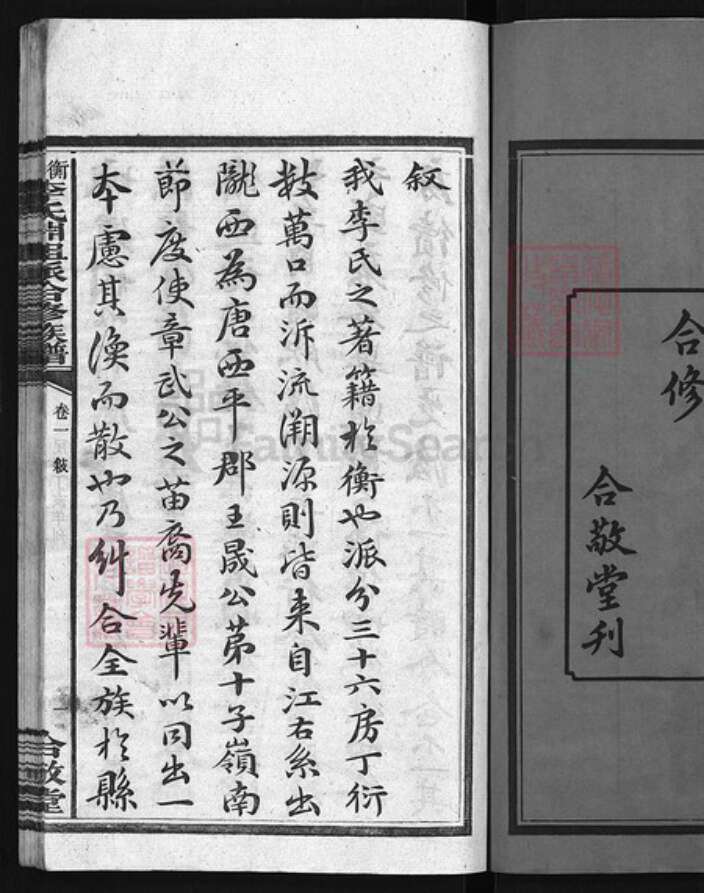 合修
合敬堂刋
叙
我李氏之著籍於衡也派分三十六房丁衍
數萬口而泝流溯源則皆来自江右系出
隴西為唐西平郡王晟公苐十子嶺南
節度使章武公之苗裔先輩以同出一
本慮其渙而散也乃糾合全族於縣
衡李氏開祖派合修族譜
卷一
敍
一
合敬堂
FamilySearch